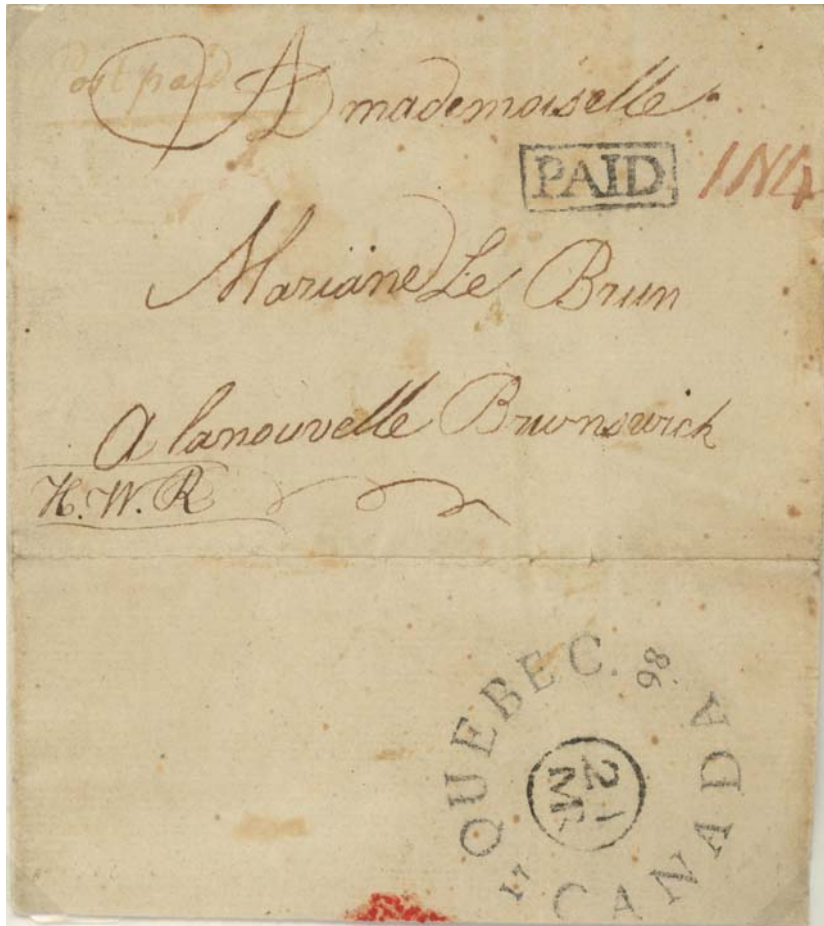 Post paid
A mademoiselle
PAID 1N4
Mariane Le Brun
A lanouvelle Brunswick
H. W. R
QUEBEC. 98.
21
MR
17 CANADA